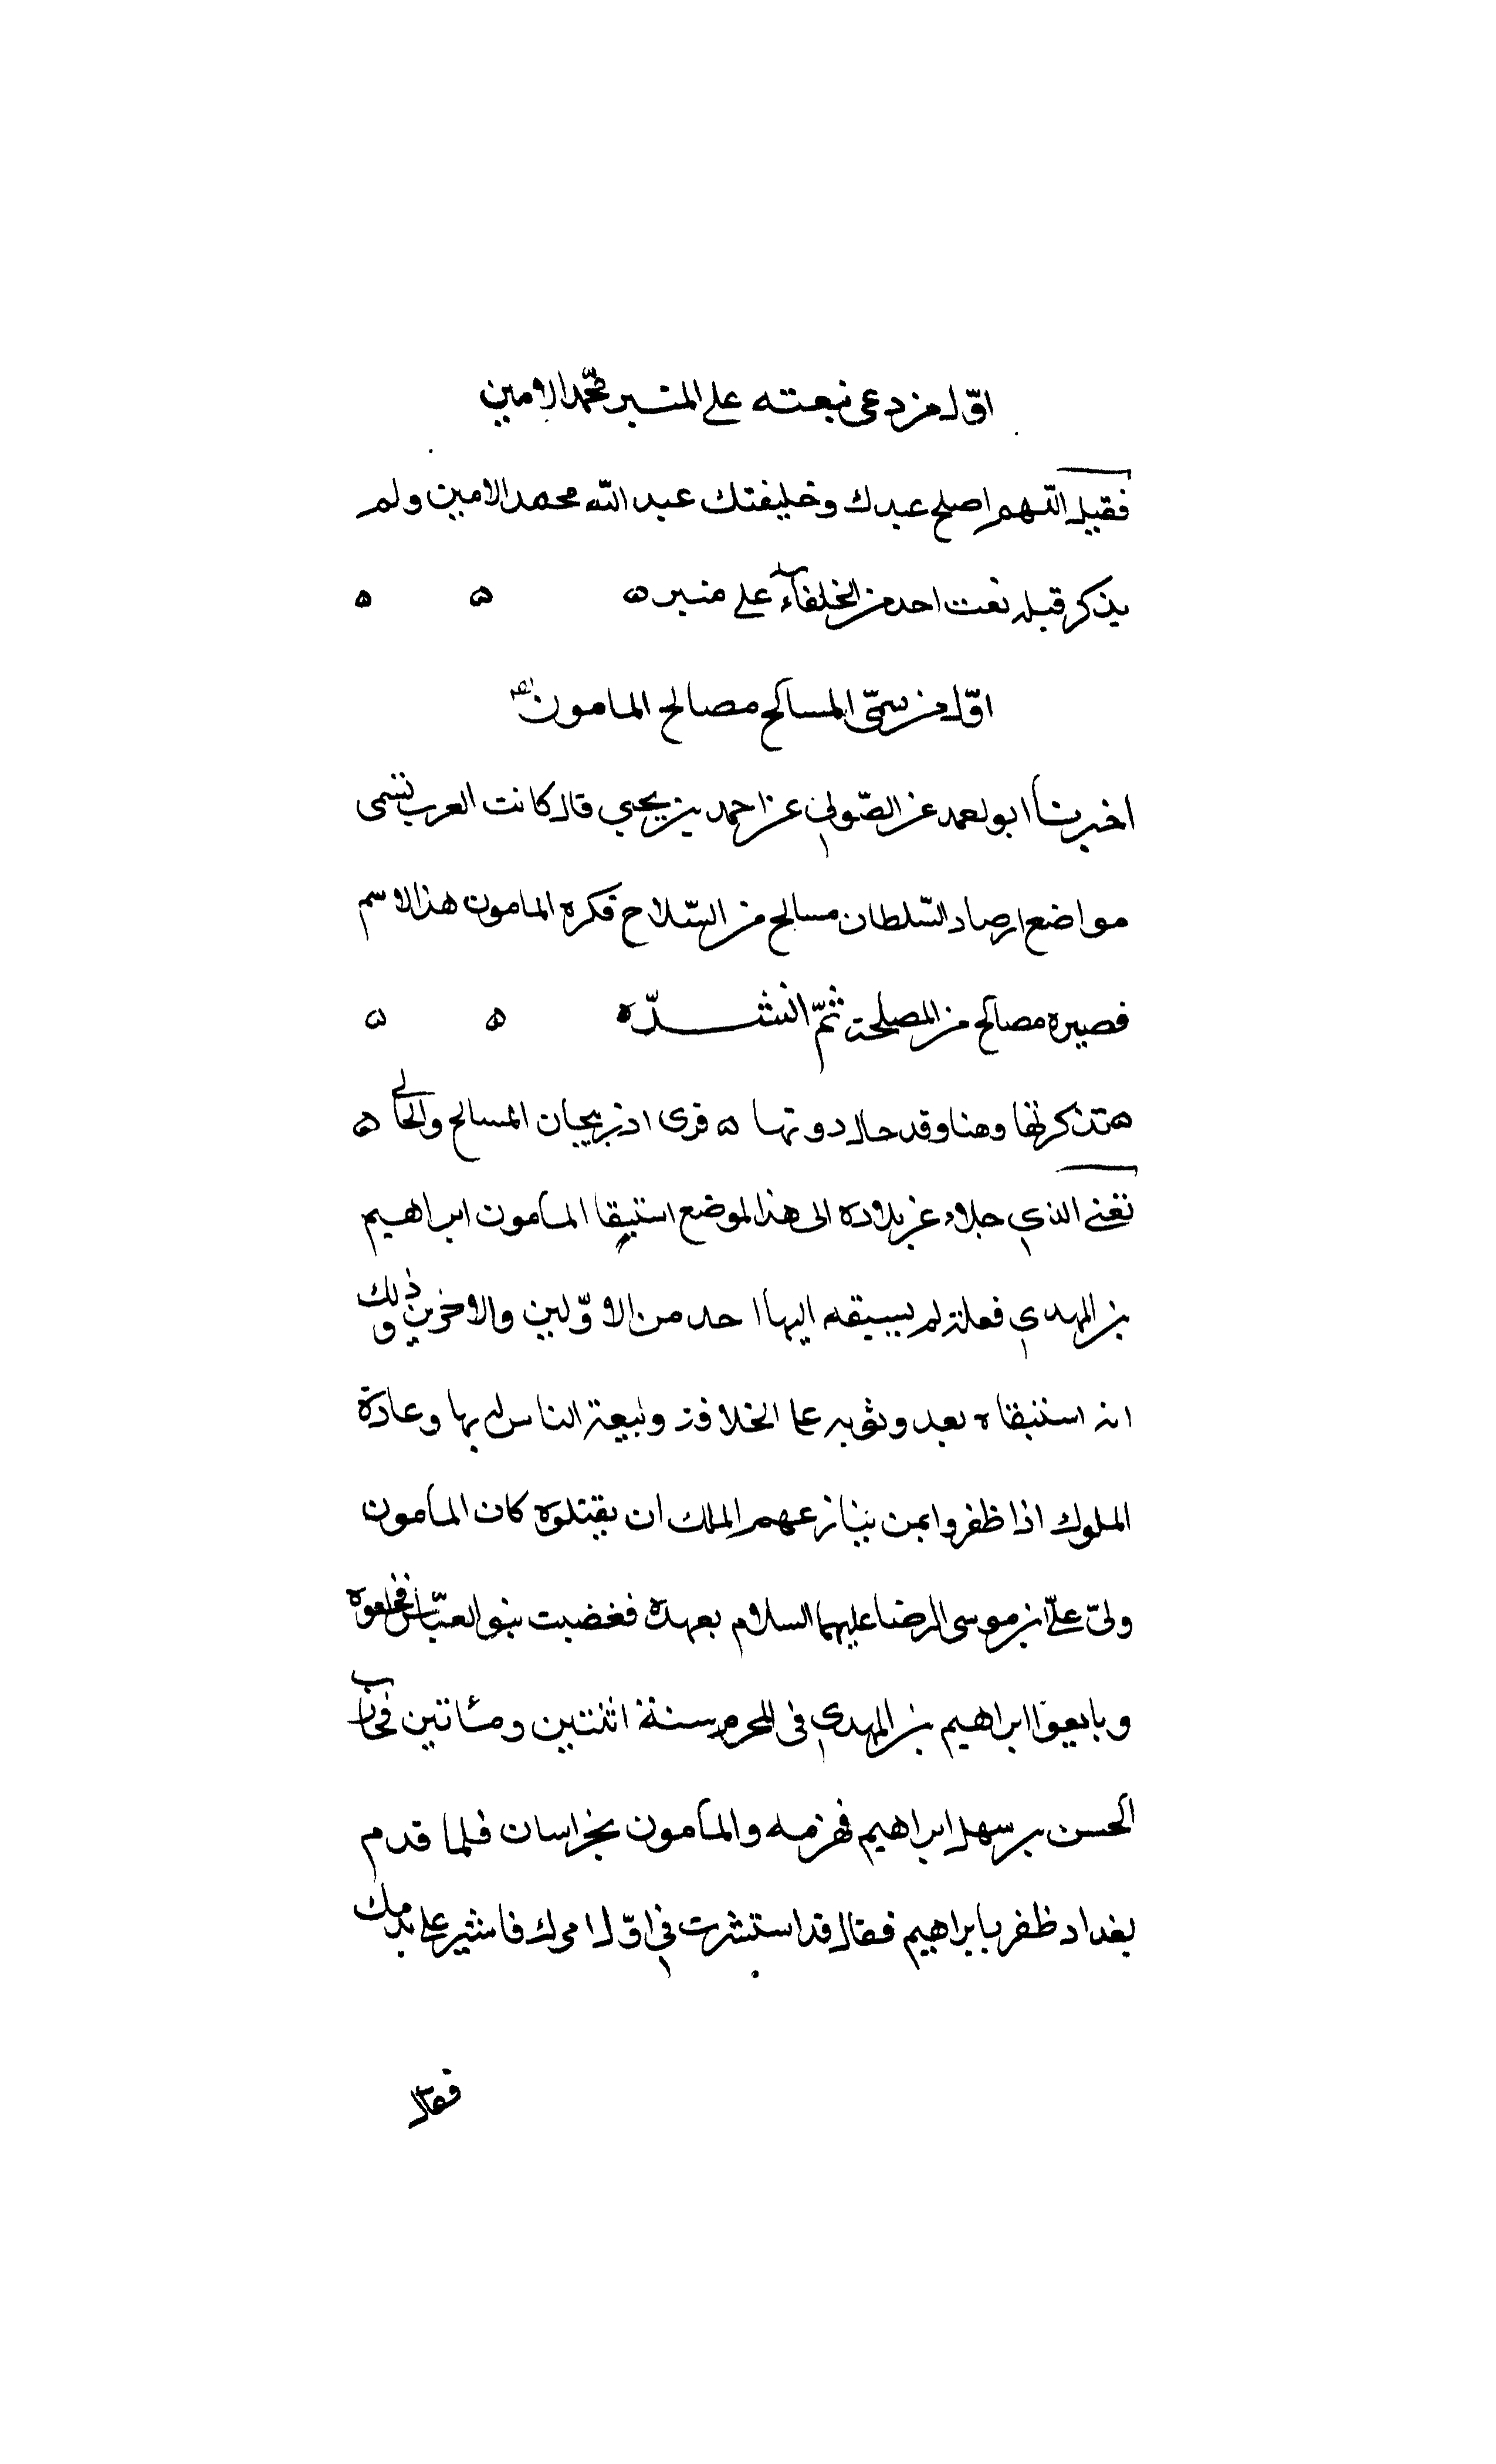 اوّل من دعى بنعته على المنبر محمّد الامين
فقيل اللّهم اصلح عبدك وخليفتك عبد اللّه محمد الامين ولم
يذكر قبله نعت احد من الخلفاء على منبر ه ه ه
اوّل من سمّى المسالح مصالح المامون
اخبرنا ابو احمد عن الصّولي عن احمد بن يحيي قال كانت العرب تسمى
مواضع ارصاد السّلطان مسالح من السّلاح فكره المامون هذا الاسم
فصيره مصالح من المصلحة ثمّ انشدّه ه ه
ه تذكرتها وهنا وقد حال دونها ه قرى اذربيجان المسالح والخالى ه
نعني الذي جلاء عن بلاده الى هذا الموضع استبقا المأمون ابراهيم
بن المهدي فعلة لم يسبقه اليها احد من الاوّلين والاخرين وذلك
انه استبقاه بعد وثوبه على الخلافة وبيعة الناس له بها وعادة
الملوك اذا ظفروا بمن ينازعهم الملك ان يقتلوه كان المأمون
ولىّ علىّ ابن موسى الرضا عليهما السلام بعهده فغضبت بنو العبّاس فخلعوه
وبايعوا ابراهيم بن المهدي في المحرم سنة اثنتين ومئاتين فحارب
الحسن بن سهل ابراهيم فهزمه والمأمون بخراسان فلما قدم
بغداد ظفر بابراهيم فقال قد استشرت في اوّل امرك فاشير على بدمك
فقال